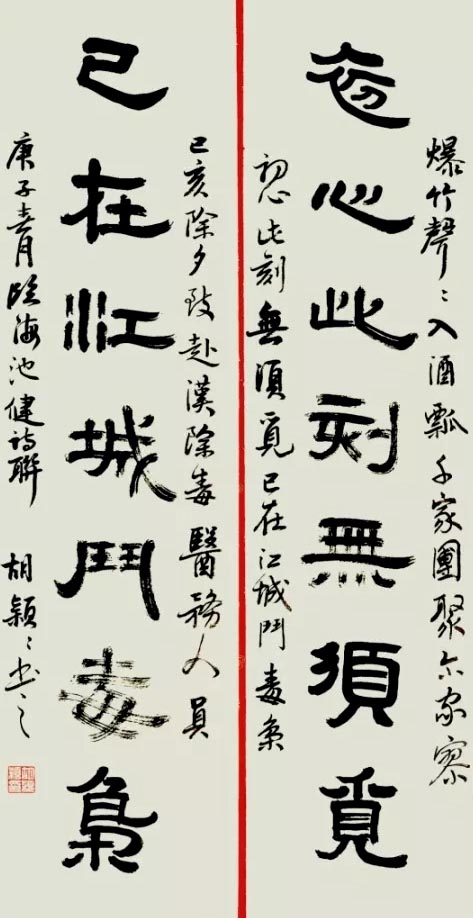 爆竹聲〻入酒瓢千家團聚尔家
初心此刻無須覓
初心此刻無須覓已在江城鬥毒梟
己亥除夕致赴漢除毒醫務人員
已在江城鬥毒梟
庚子春月臨海池健詩聯 胡穎〻書之